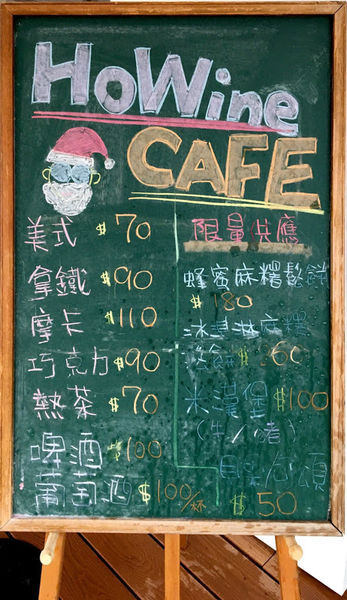 HoWine
CAFE
美式 $70
拿鐵 $90
摩卡 $110
巧克力 $90
熱茶 $70
啤酒 $100
葡萄酒 $100/杯
限量供應
蜂蜜麻糬鬆餅
$180
冰淇淋麻糬
鬆餅 $ 60
米漢堡 $100
(牛/豬)
$50